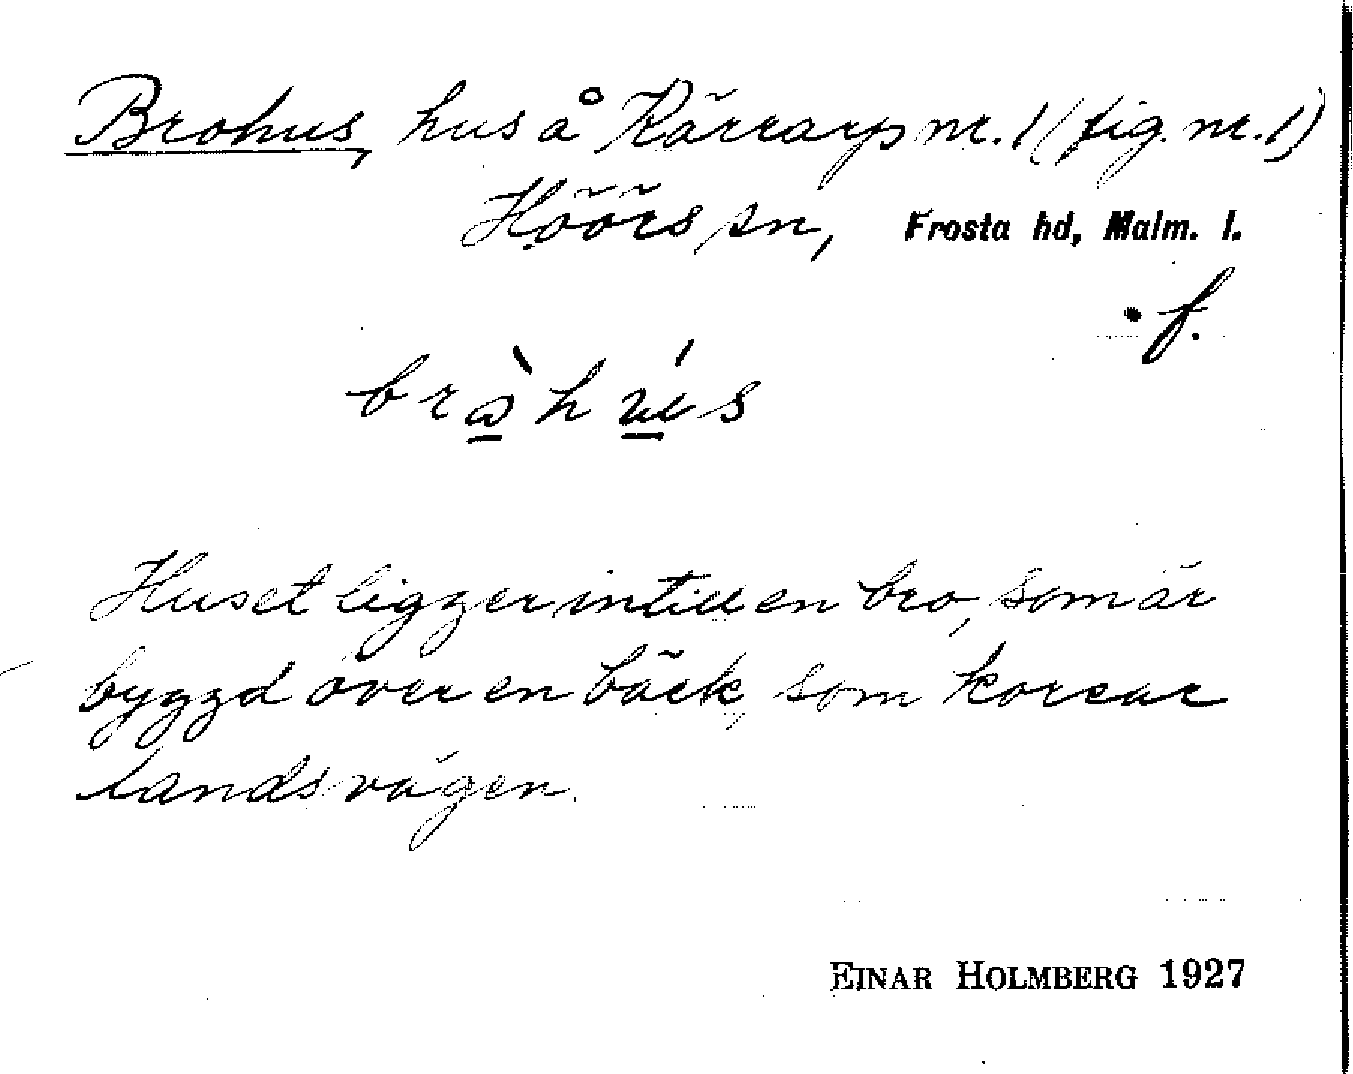 Brohus, hus å Kärrarp nr. 1 (fig. nr. 1)
Höörs sn, Frosta hd, Malm. l.
• f.
Huset ligger intill en bro, som är
byggd över en bäck, som korsar
landsvägen.
EINAR HOLMBERG 1927